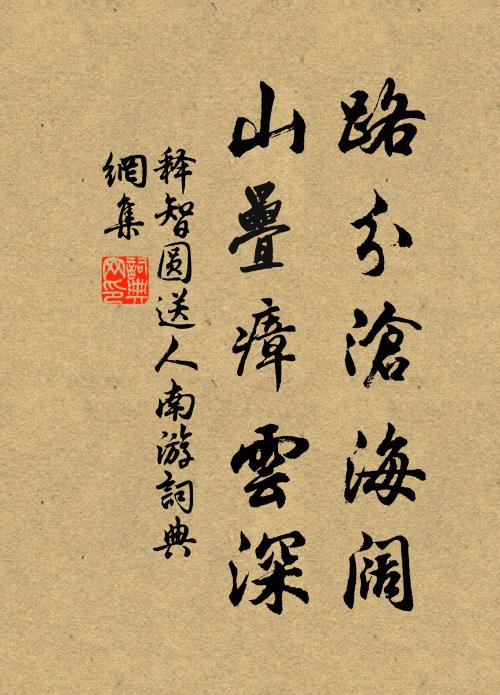 路分滄海阔
山疊瘴雲深
释智圆送人南游詞典
網集
詞典網印